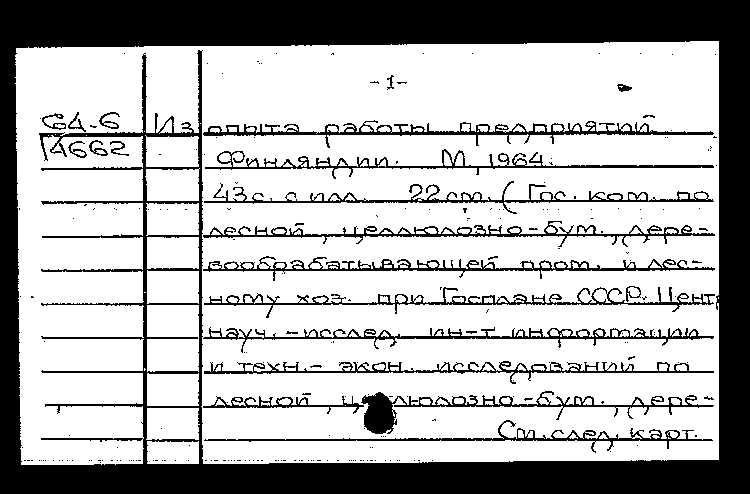 -1-
64-6 Из опыта работы предприятий
14662 Финляндии. М, 1964.
43с. с илл. 22см. (Гос. ком. по
лесной, целлюлозно-бум., дере-
вообрабатывающей пром. и лес-
ному хоз. при Госплане СССР. Центр
науч.-исслед. ин-т информации
и техн.- экон. исследований по
лесной, целлюлозно-бум., дере-
См. след. карт.